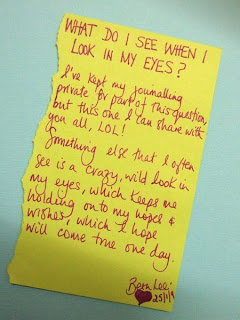 WHAT DO I SEE WHEN I
LOOK IN MY EYES?
I've kept my journalling
private for part of this question,
but this one I can share with
you all, LOL!
Something else that I often
see is a crazy, wild look in
my eyes, which keeps me
holding onto my hopes &
wishes, which I hope
will come true one day.
Beth Lee